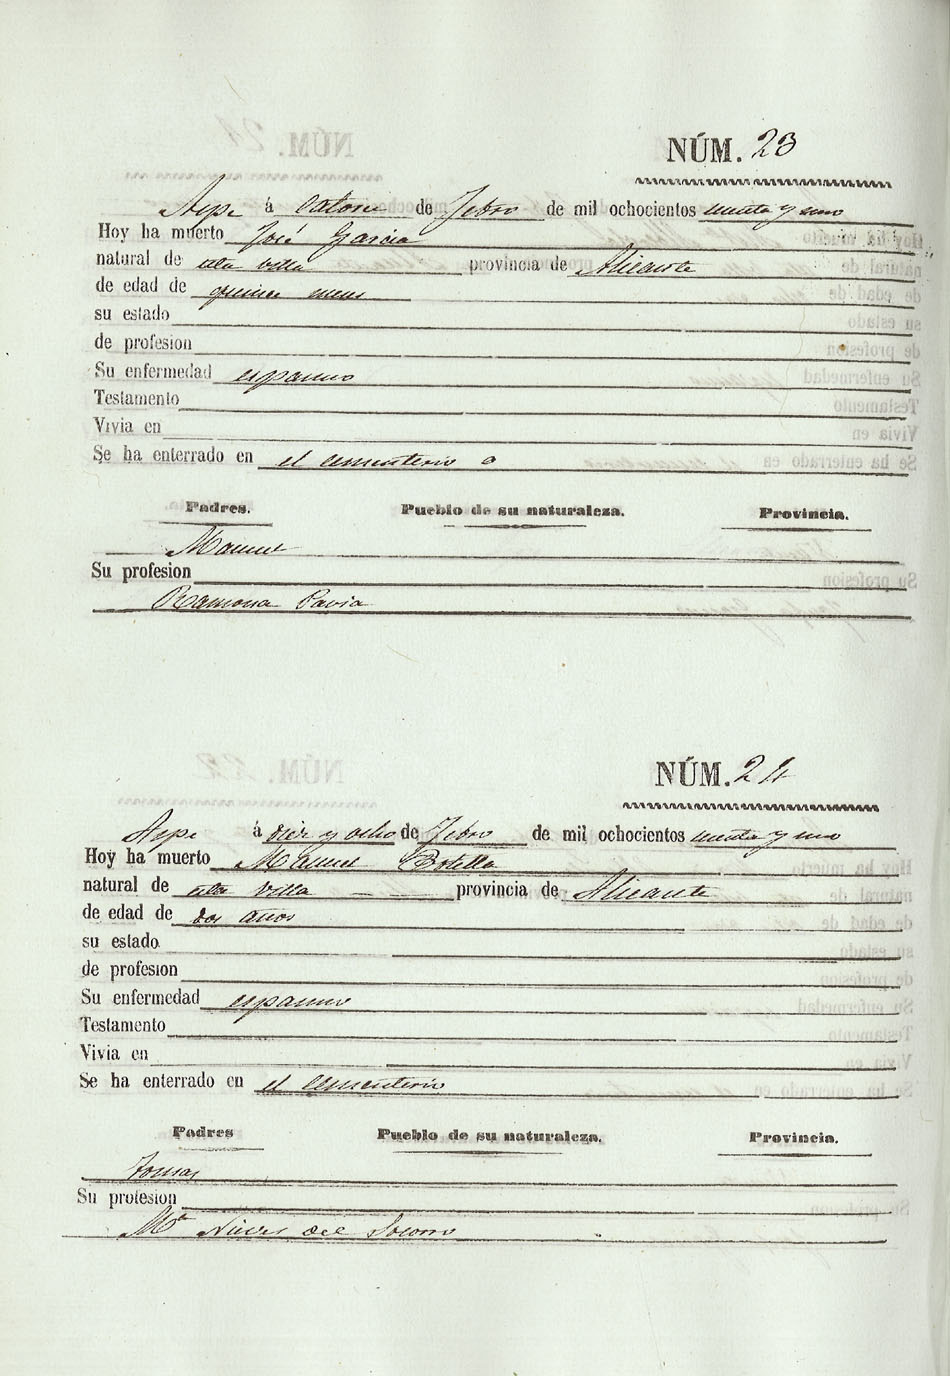 NÚM. 23
Aspe á Catorce de Febro de mil ochocientos cuenta y uno
Hoy ha muerto José Garcia
natural de esta villa provincia de Alicante
de edad de quince meses
su estado
de profesion
Su enfermedad espasmo
Testamento
Vivia en
Se ha enterrado en el cementerio
Padres. Pueblo de su naturaleza. Provincia.
Manuel
Su profesion
Ramona Pavia
NÚM. 24
Aspe á diez y ocho de Febro de mil ochocientos cuenta y uno
Hoy ha muerto Manuel Botella
natural de esta villa provincia de Alicante
de edad de dos años
su estado
de profesion
Su enfermedad espasmo
Testamento
Vivia en
Se ha enterrado en el cementerio
Padres Pueblo de su naturaleza. Provincia.
Tomas
Su profesion
Mª Nieves del Socorro